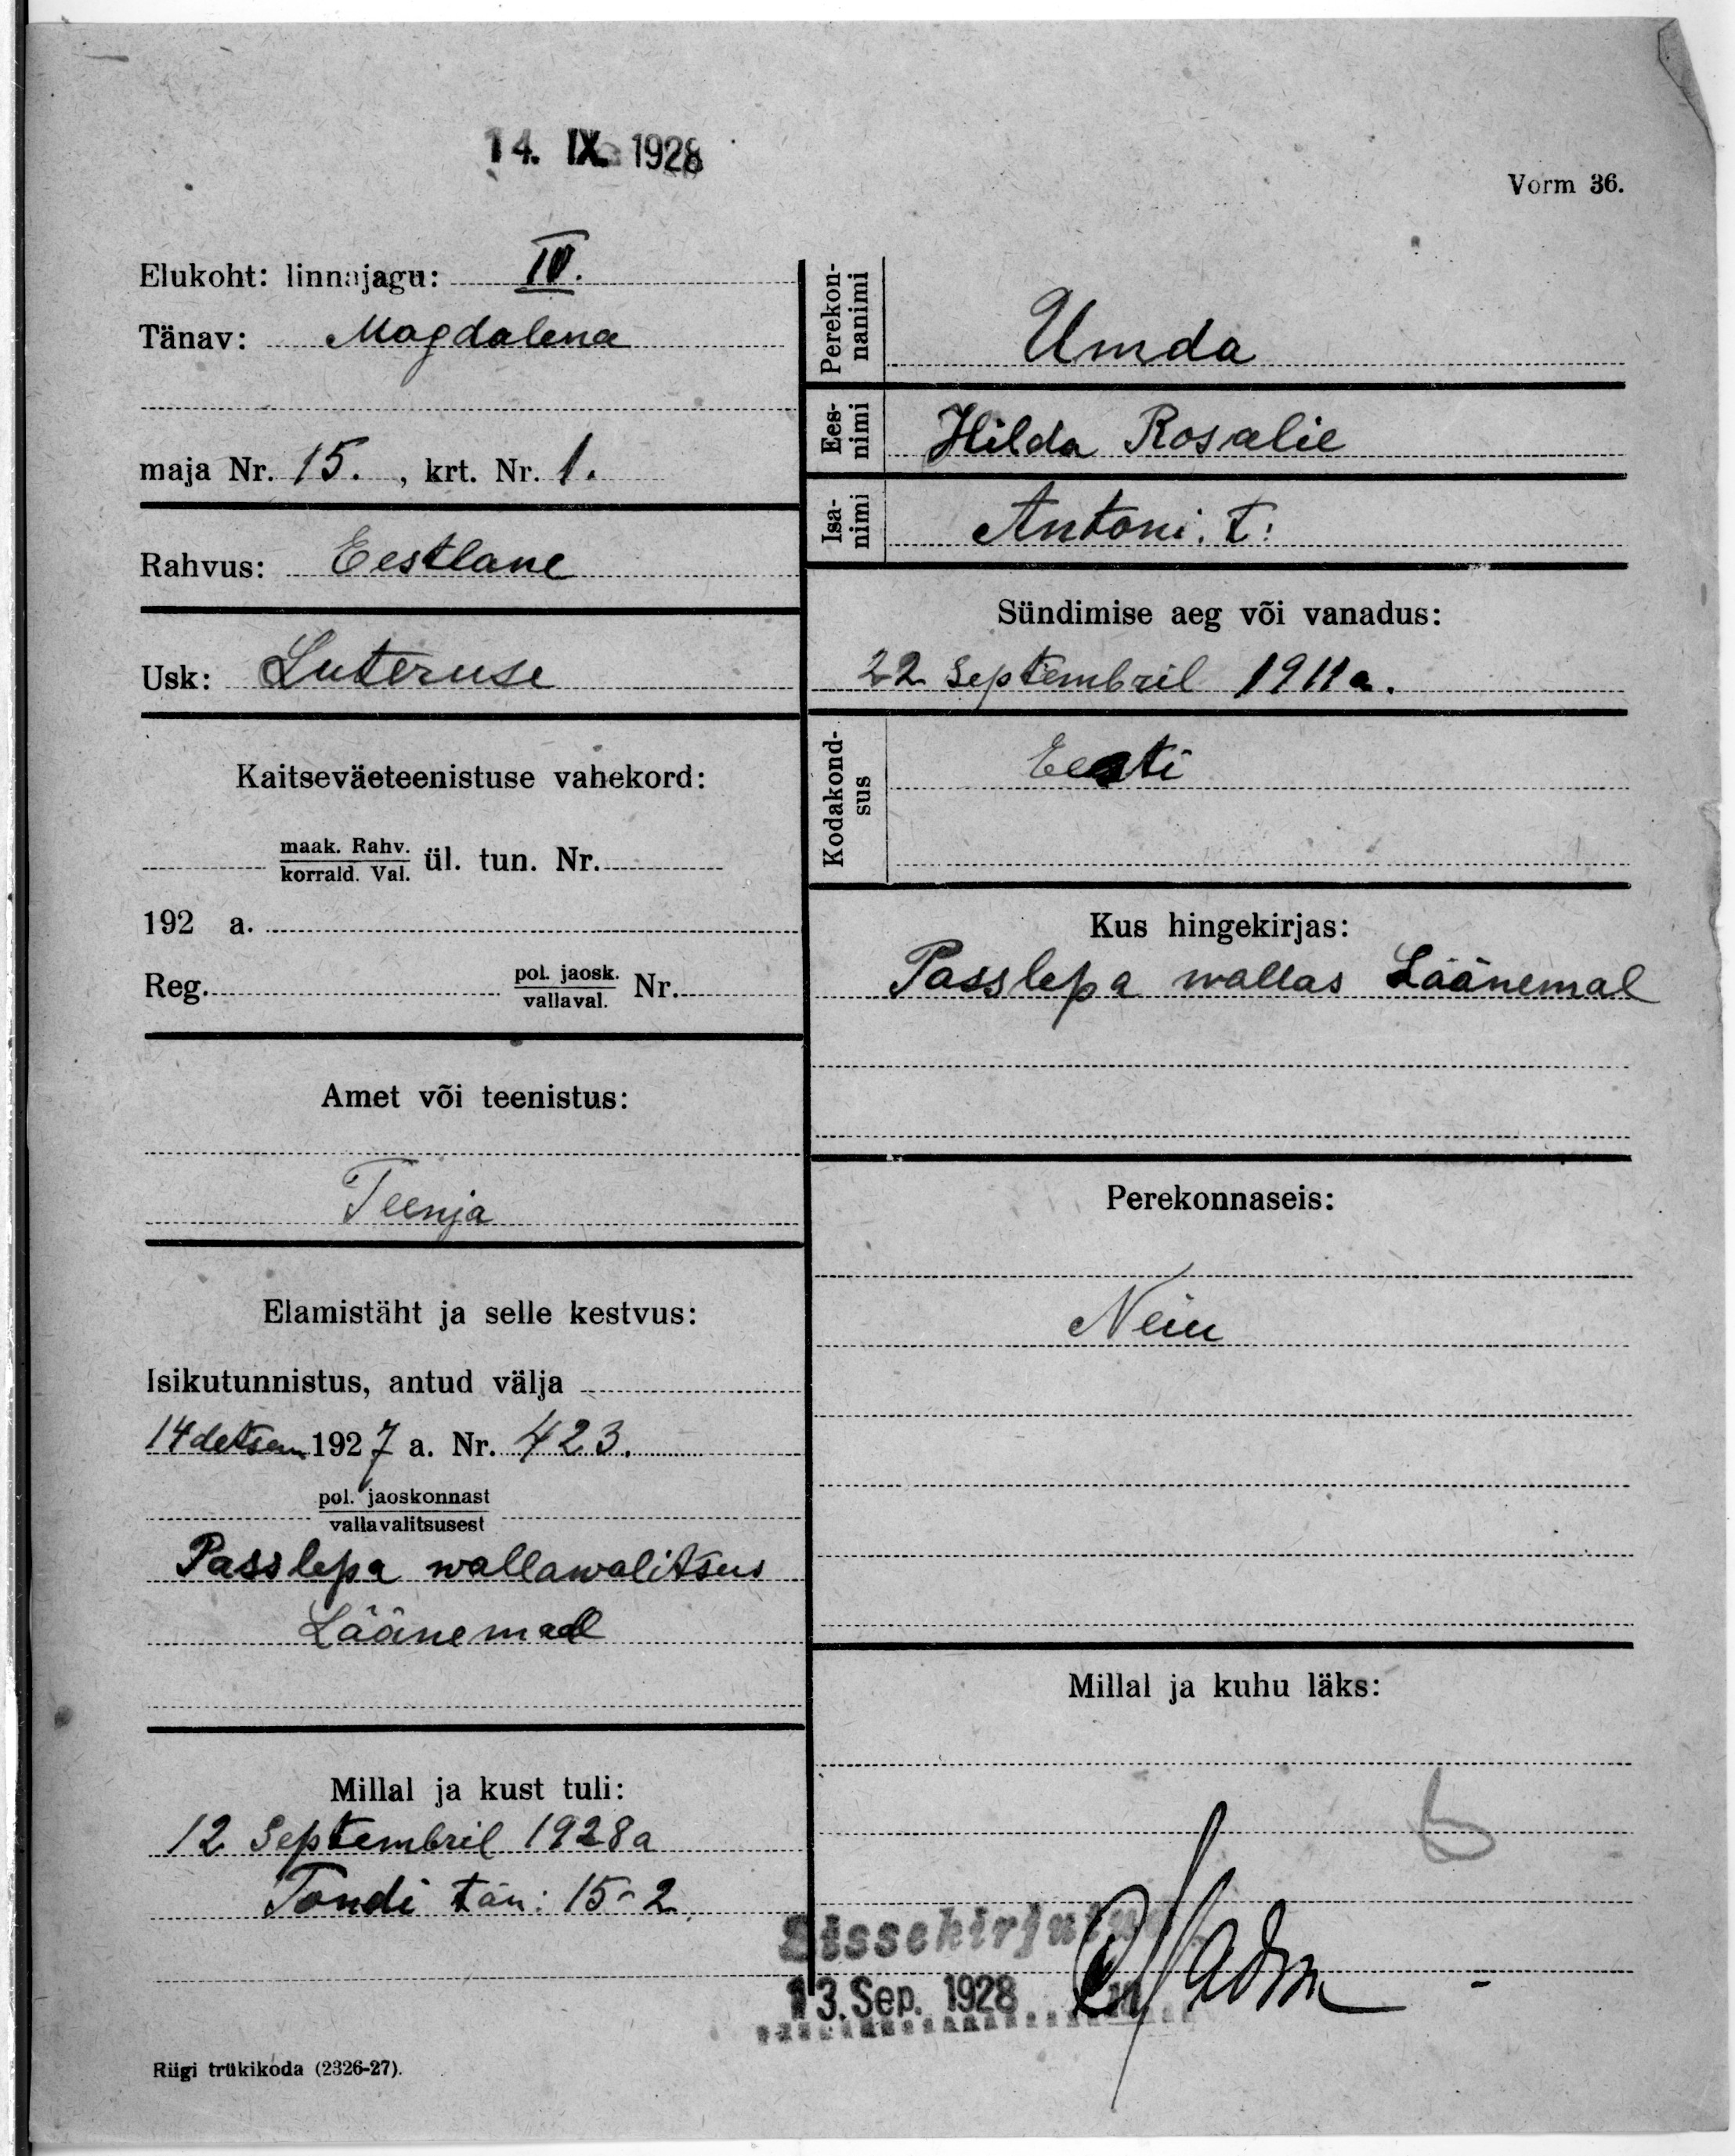 14. IX. 1928
Vorm 36.
Elukoht: linnajagu: IV.
Tänav: Magdalena
maja Nr. 15. , krt. Nr. 1.
Rahvus: Eestlane
Usk: Luteruse
Kaitseväeteenistuse vahekord:
maak. Rahv.
korrald. Val. ül. tun. Nr.
192 a.
Reg. pol. jaosk.
vallaval. Nr.
Amet või teenistus:
Teenja
Elamistäht ja selle kestvus:
Isikutunnistus, antud välja
14 detsem 1927 a. Nr. 423.
pol. jaoskonnast
vallavalitsusest
Passlepa wallawalitsus
Läänemaal
Millal ja kust tuli:
12 Septembril 1928 a
Tondi tän: 15-2.
Riigi trükikoda (2326-27).
Perekon-
nanimi
Umda
Ees-
nimi
Hilda Rosalie
Isa-
nimi
Antoni. t:
Sündimise aeg või vanadus:
22 Septembril 1911 a.
Kodakond-
sus
Eesti
Kus hingekirjas:
Passlepa wallas Läänemal
Perekonnaseis:
Neiu
Millal ja kuhu läks:
Sissekirjutud
13. Sep. 1928